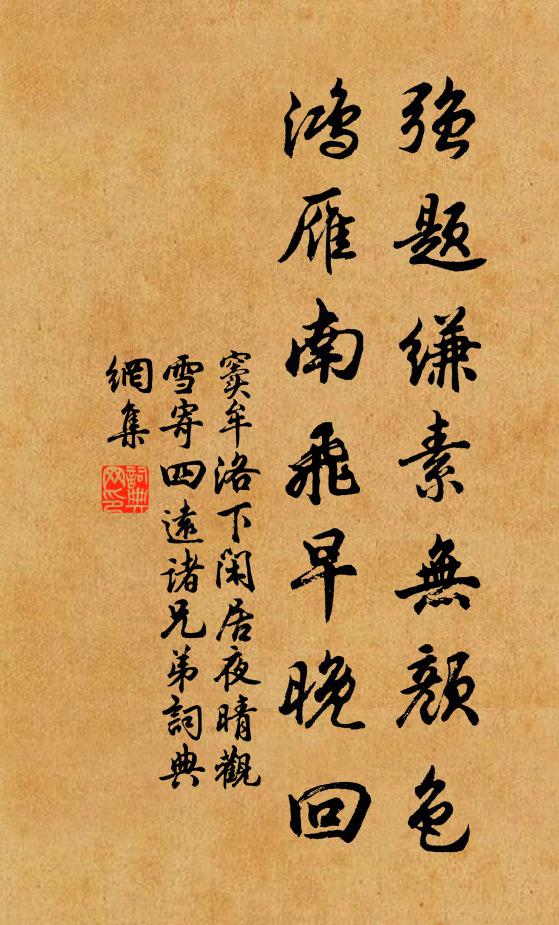 强題缣素無顏色
鴻雁南飛早晚回
竇牟洛下閑居夜晴觀
雪寄四遠諸兄弟詞典
網集
詞典
网印